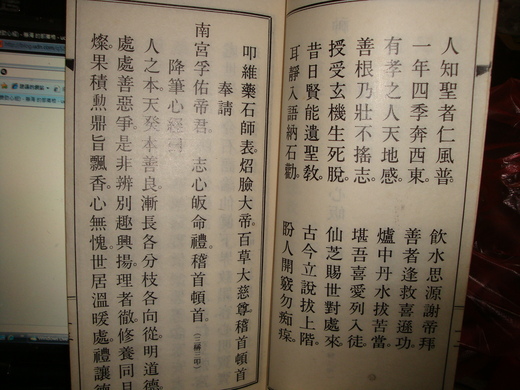 人知聖者仁風普。
飲水思源謝帝拜
一年四季奔西東。
善者逢救喜遜功。
有孝之人天地感。
爐中丹水拔苦當。
善根乃壯不搖志。
堪吾喜愛列入徒。
授受玄機生死脫。
仙芝賜世對處來。
昔日賢能遺聖教。
古今立說拔上階。
耳靜入語納石勸。
盼人開竅勿痴
叩維藥石師表炤臉大帝百草大慈尊稽首頓首
奉請
南宮孚佑帝君。志心皈命禮。稽首頓首。(三稱三叩)
降筆心經
人之本。天癸本善良。漸長各分枝各向。從明道德
處處善惡爭。是非辨別趣興揚。理者徹修養同
燦果積勲鼎旨飄香。心無愧世居溫暖處。禮讓